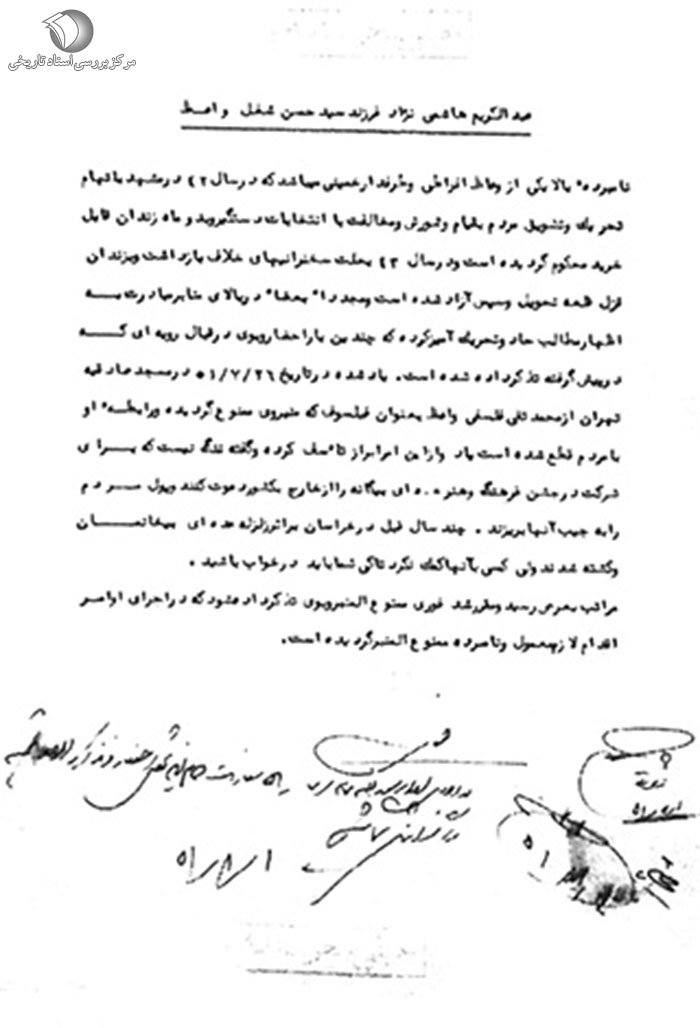 مرکز بررسی اسناد تاریخی
عبدالکریم هاشمی نژاد فرزند سید حسن شغل واعظ
نامبرده بالا یکی از وعاظ افراطی وطرفدار خمینی میباشد که در سال ۴۲ در مشهد باتهام
تحریک وتشویق مردم بقیام وشورش ومخالفت با انتخابات دستگیر وبدو ماه زندان قابل
خرید محکوم گردیده است ودر سال ۴۳ بعلت سخنرانیهای خلاف بازداشت وبزندان
قزل قلعه تحویل وسپس آزاد شده است ومجددا" بعضا" در بالای منابر مبادرت بــه
اظهار مطالب حاد وتحریک آمیز کرده که چندین بار احضار وبوی در قبال رویه ای کــه
در پیش گرفته تذکر داده شده است. یاد شده در تاریخ ۵۱/۷/۲۶ در مسجد صادقیه
تهران از محمد تقی فلسفی واعظ بعنوان فیلسوف که منبروی ممنوع گردیده ورابطه او
با مردم قطع شده است یاد وازاین امر ابراز تاسف کرده وگفته ننگ نیست که بــرای
شرکت در جشن فرهنگ وهنر عده ای بیگانه را از خارج بکشور دعوت کنند وپول مــردم
را به جیب آنها بریزند . چند سال قبل در خراسان بر اثر زلزله عده ای بیخانمــان
وکشته شدند ولی کسی بآنها کمک نکرد تاکی شما باید در خواب باشید .
مراتب بعرض رسید ومقرر شد فوری ممنوع المنبر وبوی تذکر داده شود که در اجرای اوامر
اقدام لازم معمول ونامبرده ممنوع المنبر گردیده است.
۵۱/۸/۱